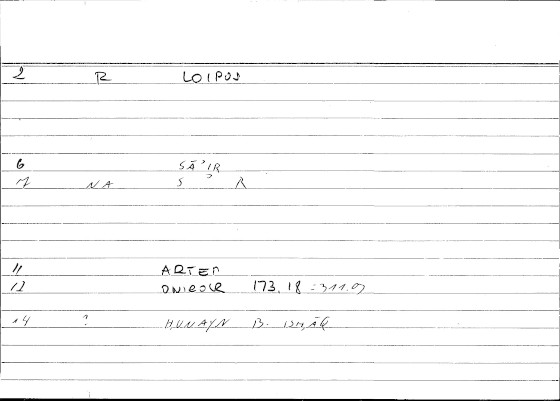 2 R LOIPOS
6 SĀ'IR
7 NA S ' R
11 ARTEM
12 ONIROCR 173, 18 = 311.07
14 ? HUNAYN B. ISḤĀQ